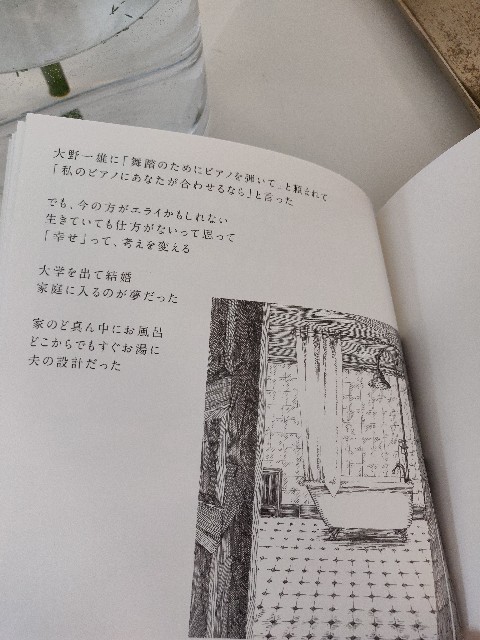 大野一雄に「舞踏のためにピアノを弾いて」と頼まれて
「私のピアノにあなたが合わせるなら」と言った
でも、今の方がエライかもしれない
生きていても仕方がないって思って
「幸せ」って、考えを変える
大学を出て結婚
家庭に入るのが夢だった
家のど真ん中にお風呂
どこからでもすぐお湯に
夫の設計だった